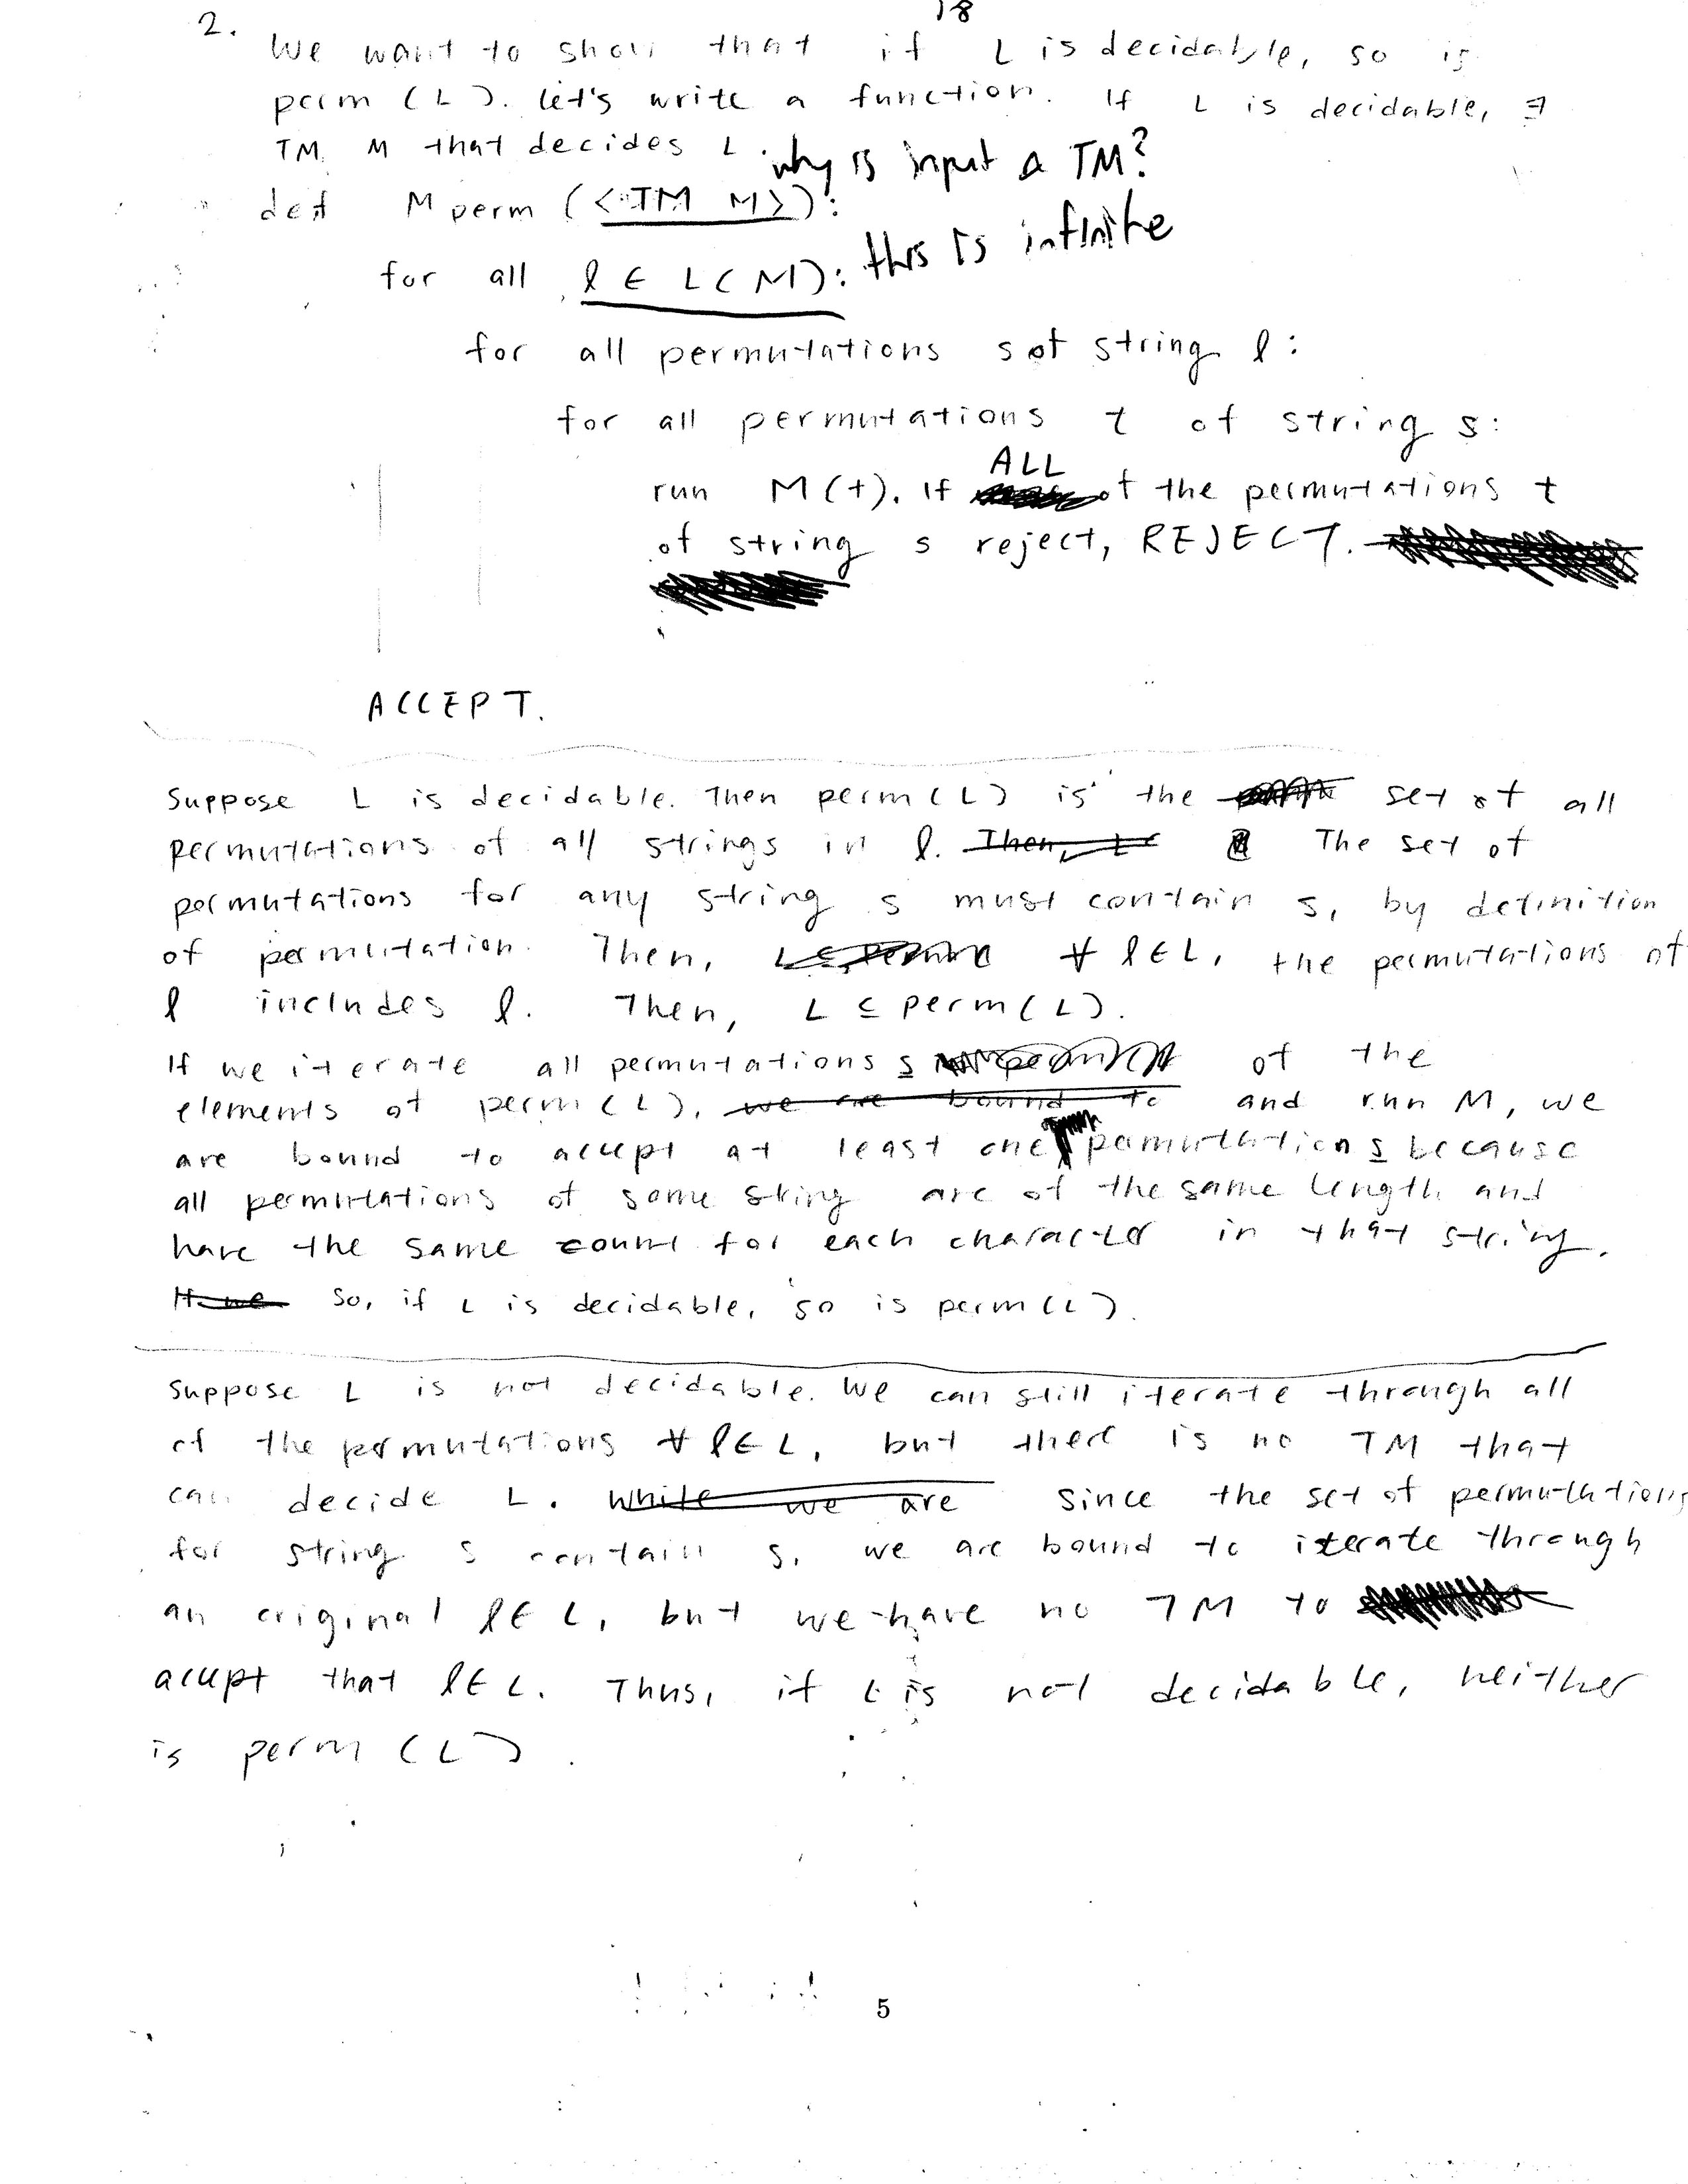 18
2.
We want to show that if L is decidable, so is
perm (L). Let's write a function. If L is decidable, ∃
TM M that decides L.
why is input a TM?
def M perm (<TM M>):
for all l ∈ L(M): this is infinite
for all permutations s of string l:
for all permutations t of string s:
ALL
run M(t). If of the permutations t
of string s reject, REJECT.
ACCEPT.
Suppose L is decidable. Then perm(L) is the set of all
permutations of all strings in l. Then, The set of
permutations for any string s must contain s, by definition
of permutation. Then, ∀ l ∈ L, the permutations of
l includes l. Then, L ⊆ perm(L).
If we iterate all permutations s of the
elements of perm(L), we are bound to and run M, we
are bound to accept at least one permutation s because
all permutations of some string are of the same length and
have the same count for each character in that string.
So, if L is decidable, so is perm(L).
Suppose L is not decidable. We can still iterate through all
of the permutations ∀ l ∈ L, but there is no TM that
can decide L. While we are Since the set of permutations
for string s contain s, we are bound to iterate through
an original l ∈ L, but we have no TM to
accept that l ∈ L. Thus, if L is not decidable, neither
is perm (L).
5